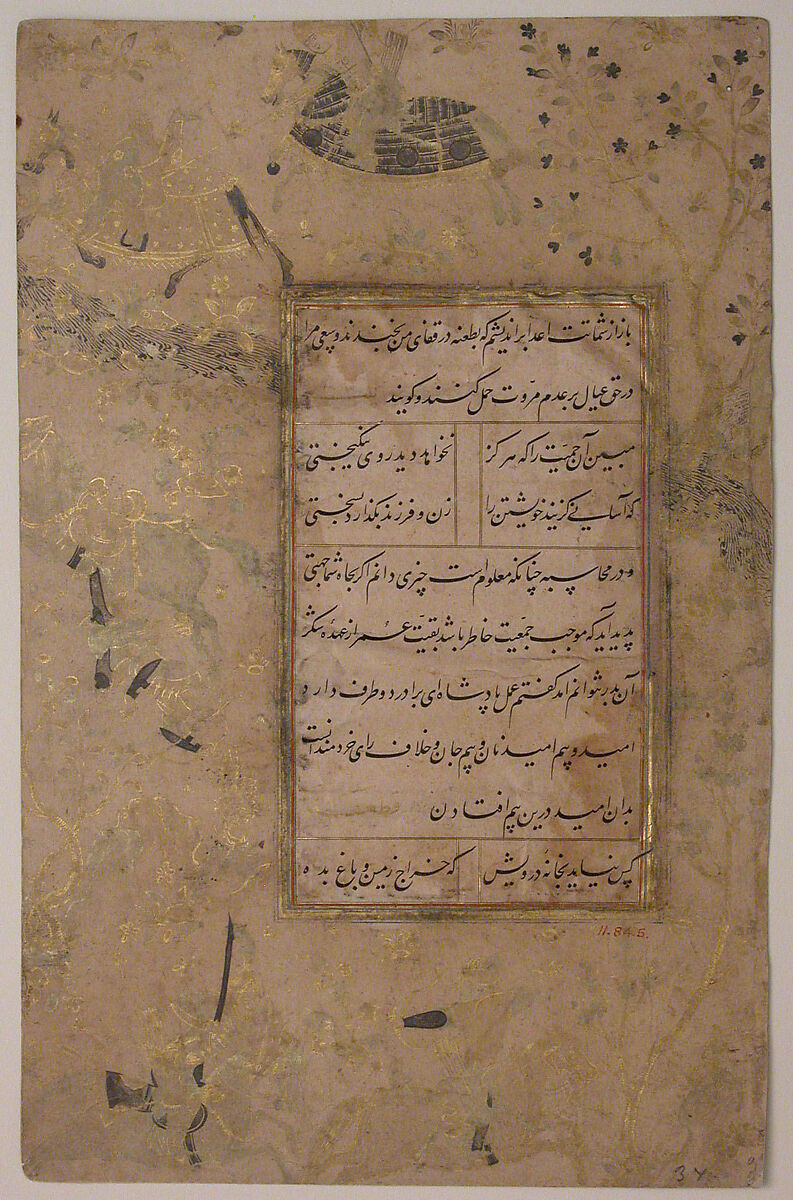 باز از شماتت اعدا براندیشم که بطعنه در قفای من بخندند و سعی مرا
در حق عیال بر عدم مروّت حمل کنند و کویند
مبین آن بی حمیّت را که هرکز نخواهد دید روی نیکبختی
که آسانی کزیند خویشتن را زن و فرزند بکذارد بسختی
و در محاسبه چنانکه معلومست چیزی دانم اکر بجاه شما جهتی
پدید آید که موجب جمعیّت خاطر باشد بقیّت عمر از عهده شکر
آن بدر نتوانم امد کفتم عمل پادشاه ای برادر دو طرف دارد
امید و بیم امید نان و بیم جان و خلاف رای خردمندانست
بدان امید درین بیم افتادن
کس نیاید بخانه درویش که خراج زمین و باغ بده
11.84.5.